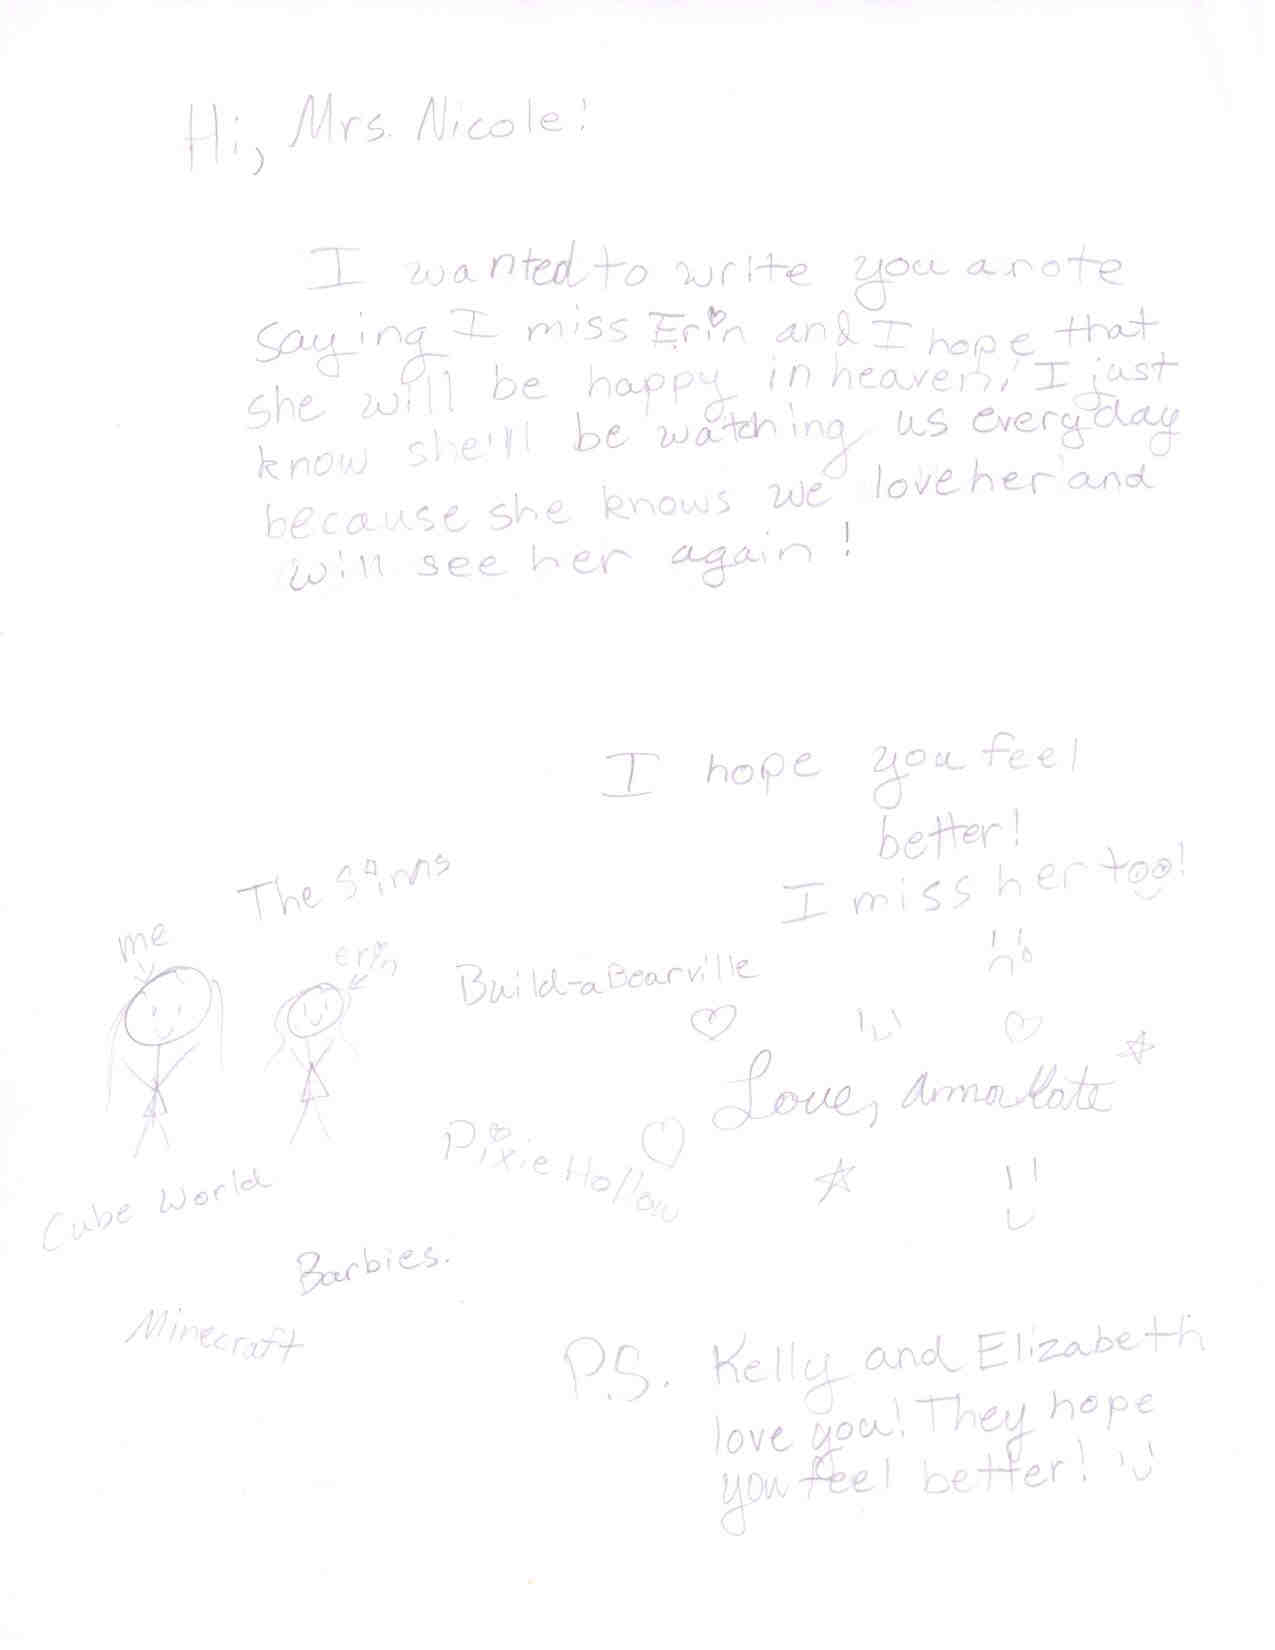 Hi, Mrs. Nicole!
I wanted to write you a note
saying I miss Erin and I hope that
she will be happy in heaven, I just
know she'll be watching us everyday
because she knows we love her and
will see her again!
I hope you feel
better!
I miss her too!
The Simms
me
erin
Build-a Bearville
Love, Anna Kate
Pixie Hollow
Cube World
Barbies.
Minecraft
P.S. Kelly and Elizabeth
love you! They hope
you feel better!